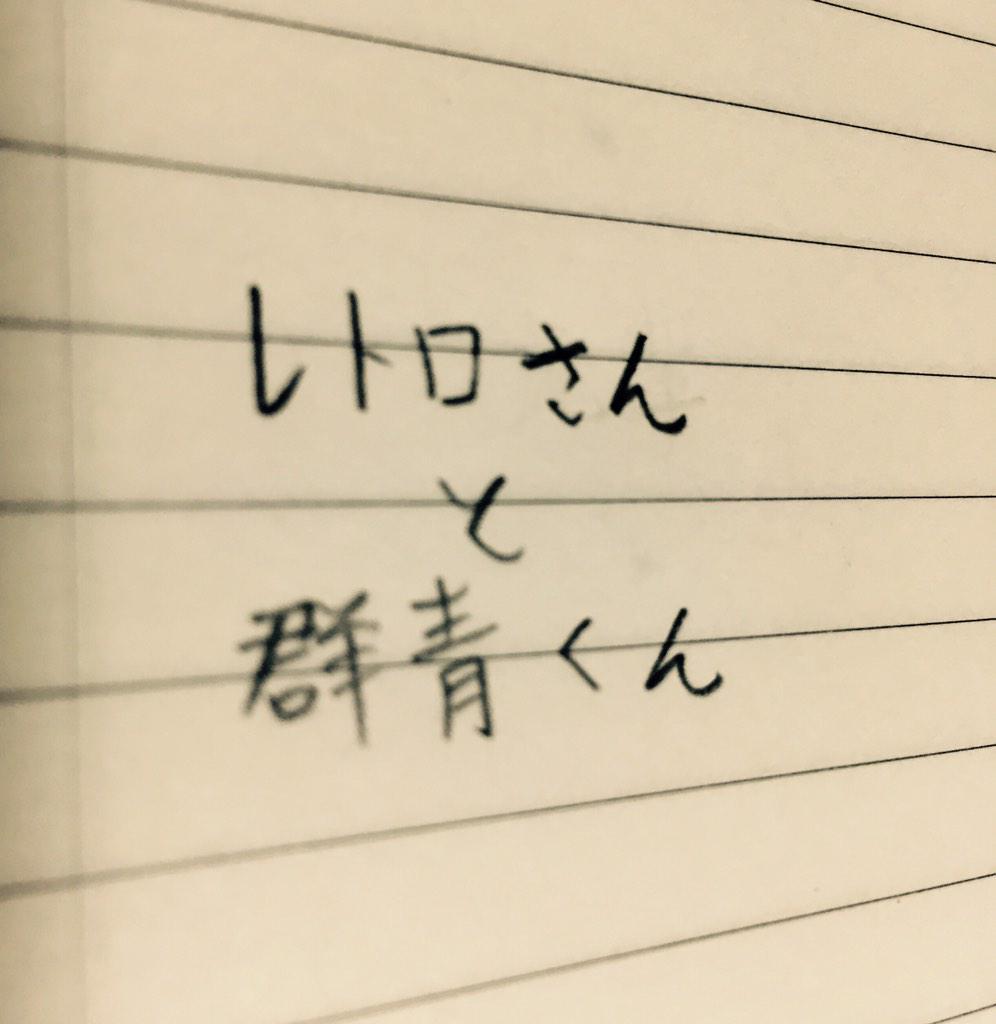 レトロさん
と
群青くん